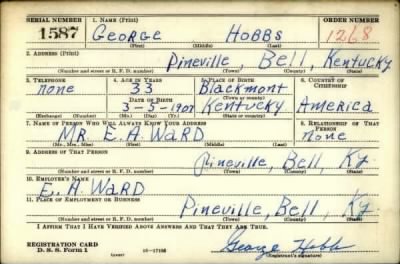 SERIAL NUMBER 1. NAME (Print) ORDER NUMBER
1587 George HOBBS 1268
(First) (Middle) (Last)
2. ADDRESS (Print)
Pineville, Bell, Kentucky
(Number and street or R. F. D. number) (Town) (County) (State)
3. TELEPHONE 4. AGE IN YEARS 5. PLACE OF BIRTH 6. COUNTRY OF CITIZENSHIP
none 33 Blackmont
DATE OF BIRTH (Town or county)
3-5-1907 Kentucky America
(Exchange) (Number) (Mo.) (Day) (Yr.) (State or country)
7. NAME OF PERSON WHO WILL ALWAYS KNOW YOUR ADDRESS 8. RELATIONSHIP OF THAT PERSON
MR. E. A. WARD none
(Mr., Mrs., Miss) (First) (Middle) (Last)
9. ADDRESS OF THAT PERSON
Pineville, Bell, Ky
(Number and street or R. F. D. number) (Town) (County) (State)
10. EMPLOYER'S NAME
E. A. WARD
11. PLACE OF EMPLOYMENT OR BUSINESS
Pineville, Bell, Ky.
(Number and street or R. F. D. number) (Town) (County) (State)
I AFFIRM THAT I HAVE VERIFIED ABOVE ANSWERS AND THAT THEY ARE TRUE.
REGISTRATION CARD
D. S. S. Form 1 (over) George Hobbs
(Registrant's signature)